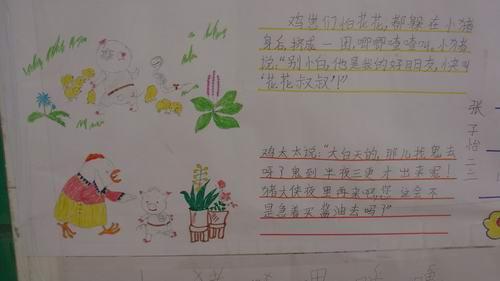 鸡崽们怕花花,都躲在小猪
身后挤成一团,唧唧喳喳叫,小猪
说:"别小白,他是我的好朋友,快叫
'花花叔叔'!"
鸡太太说:"大白天的,那儿找鬼去
呀?鬼到半夜三更才出来呢!
猪大侠夜里再来吧,您这会不
是急着买酱油去吗?"
张子怡二二